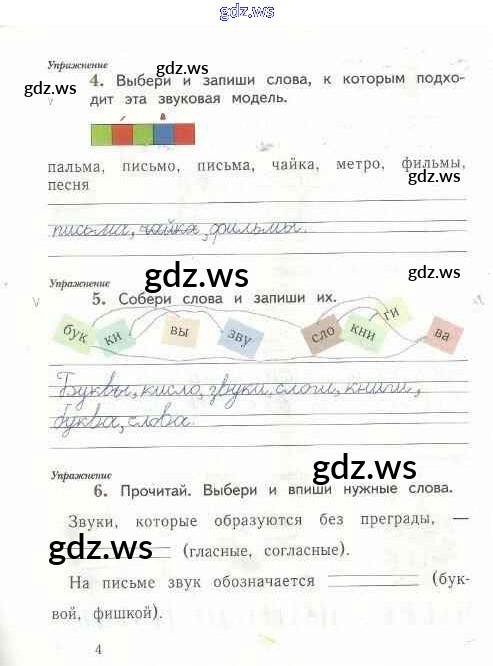 gdz.ws
Упражнение
4. Выбери и запиши слова, к которым подхо-
дит эта звуковая модель.
gdz.ws
gdz.ws
пальма, письмо, письма, чайка, метро, фильмы,
песня
gdz.ws
письма, чайка, фильмы.
Упражнение
gdz.ws
gdz.ws
5. Собери слова и запиши их.
бук ки вы зву сло кни ги ва
Буквы, кисло, звуки, слоги, книги,
буква, слова.
Упражнение
gdz.ws
6. Прочитай. Выбери и впиши нужные слова.
Звуки, которые образуются без преграды, —
gdz.ws (гласные, согласные).
На письме звук обозначается (бук-
вой, фишкой).
4